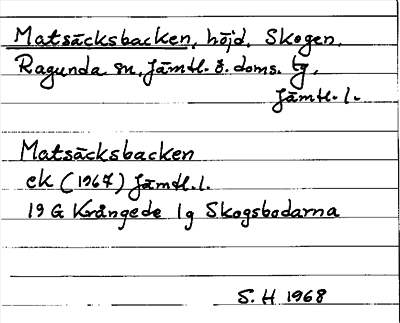 Matsäcksbacken, höjd, Skogen,
Ragunda sn, Jämtl. ö. doms. tg,
Jämtl. l.
Matsäcksbacken
ek (1967) Jämtl. l.
19 G Krångede 1g Skogsbodarna
S. H 1968